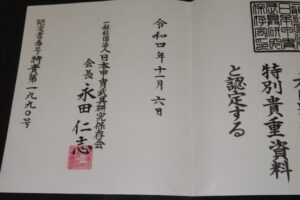 特別貴重資料
と認定する
令和四年十一月六日
一般社団法人日本甲冑武具研究保存会
会長 永田仁志
認定書番号 特貴第一九九〇号